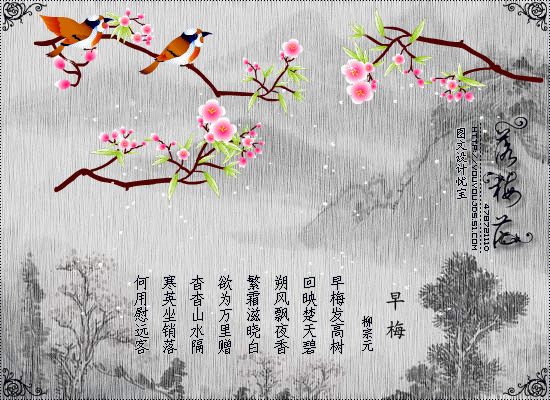 落梅花
HTTP://YOUYOU.JOSS1.COM
478721110
图文设计忧宝
早梅
柳宗元
早梅发高树
回映楚天碧
朔风飘夜香
繁霜滋晓白
欲为万里赠
杳杳山水隔
寒英坐销落
何用慰远客